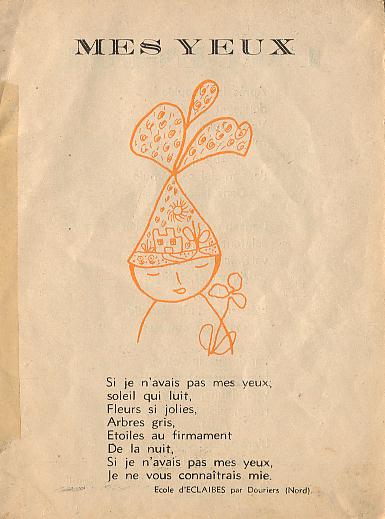 MES YEUX
Si je n'avais pas mes yeux,
soleil qui luit,
Fleurs si jolies,
Arbres gris,
Etoiles au firmament
De la nuit,
Si je n'avais pas mes yeux,
Je ne vous connaîtrais mie.
Ecole d'ECLAIBES par Douriers (Nord).